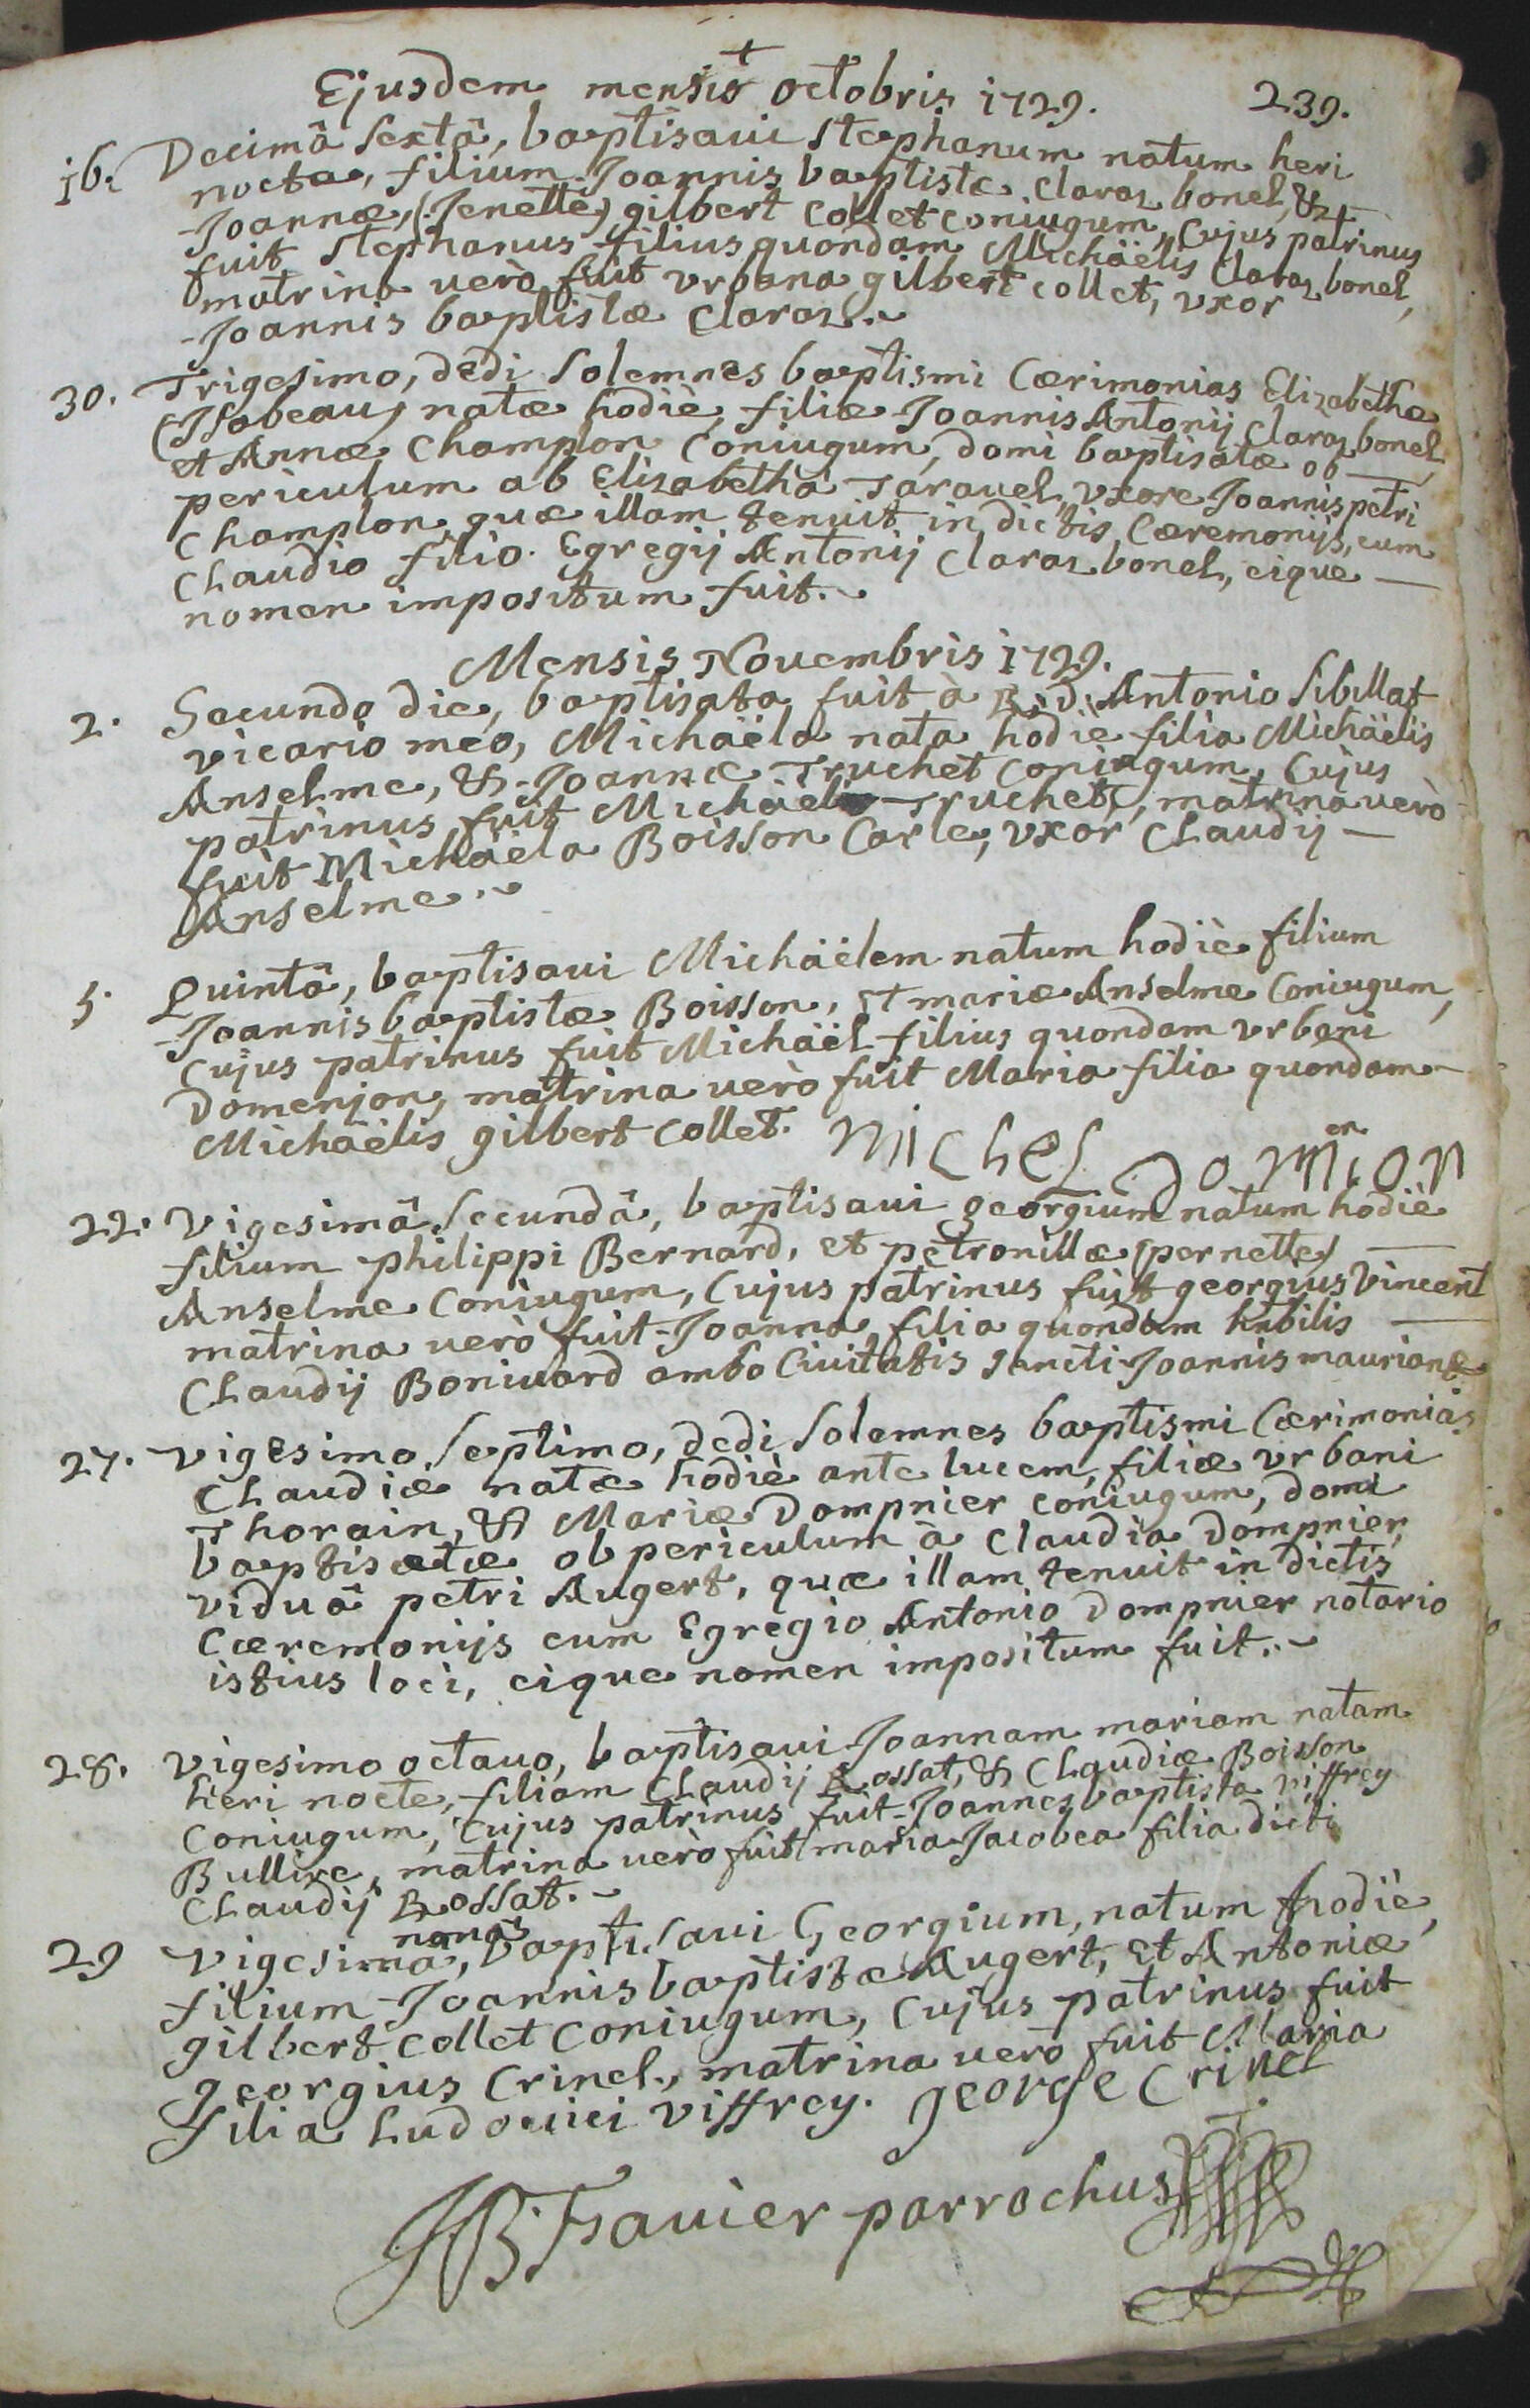 +
Ejusdem mensis octobris 1729. 239.
16. Decimâ sextâ, baptisavi Stephanum natum heri
nocte, filium Joannis baptistæ Claraz bonel, &
Joannæ, (Jenette) gilbert Collet coniugum, Cujus patrinus
fuit Stephanus filius quondam Michäelis Claraz bonel,
matrina verò fuit Vrbana gilbert collet, vxor
Joannis baptistæ Claraz.
30. Trigesimo, dedi solemnes baptismi Cærimonias Elizabethæ
(Isabeau) natæ hodiè, filiæ Joannis Antonij Claraz bonel
et Annæ Champlon Coniugum, domi baptisatæ ob
periculum ab Elisabethâ Taravel, vxore Joannis petri
Champlon, quæ illam tenuit in dictis Cæremonijs, cum
Claudio filio Egregij Antonij Claraz bonel, eique
nomen impositum fuit.
Mensis Novembris 1729.
2. Secundo die, baptisata fuit à R. d. Antonio Sibillat
vicario meo, Michäela nata hodie filia Michäelis
Anselme, & Joannæ Truchet coniugum, Cujus
patrinus fuit Michäel Truchet, matrina verò
fuit Michäela Boisson Carle, vxor Claudij
Anselme.
5. Quintâ, baptisavi Michäëlem natum hodiè filium
Joannis baptistæ Boisson, et mariæ Anselme Coniugum,
Cujus patrinus fuit Michäël filius quondam vrbani
Domenjon, matrina verò fuit Maria filia quondam
Michäëlis gilbert Collet. Michel Domenion
22. Vigesimâ secundâ, baptisavi georgium natum hodiè
filium philippi Bernard, et petronillæ (pernette)
Anselme Coniugum, Cujus patrinus fuit georgius Vincent
matrina verò fuit Joanna filia quondam
Claudij Bonivard ambo Civitatis sancti Joannis maurianæ
27. Vigesimo septimo, dedi solemnes baptismi Cærimonias
Claudiæ natæ hodiè ante lucem, filiæ vrbani
Thorain, & Mariæ Dompnier coniugum, domi
baptisatæ ob periculum à Claudia Dompnier,
viduâ petri Augert, quæ illam tenuit in dictis
Cæremonijs cum Egregio Antonio Dompnier notario
istius loci, eique nomen impositum fuit.
28. Vigesimo octavo, baptisavi Joannam mariam natam
heri nocte, filiam Claudij Rossat, & Claudiæ Boisson
Coniugum, Cujus patrinus fuit Joannes baptista Viffrey
Bullire, matrina verò fuit maria Jacobea filia dicti
Claudij Rossat.
29 Vigesimâ nonâ, baptisavi Georgium, natum hodiè,
filium Joannis baptistæ Augert, et Antoniæ
gilbert Collet Coniugum, Cujus patrinus fuit
georgius Crinel, matrina verò fuit Maria
filia Ludovici Viffrey. george Crinel
JB Travier parrochus